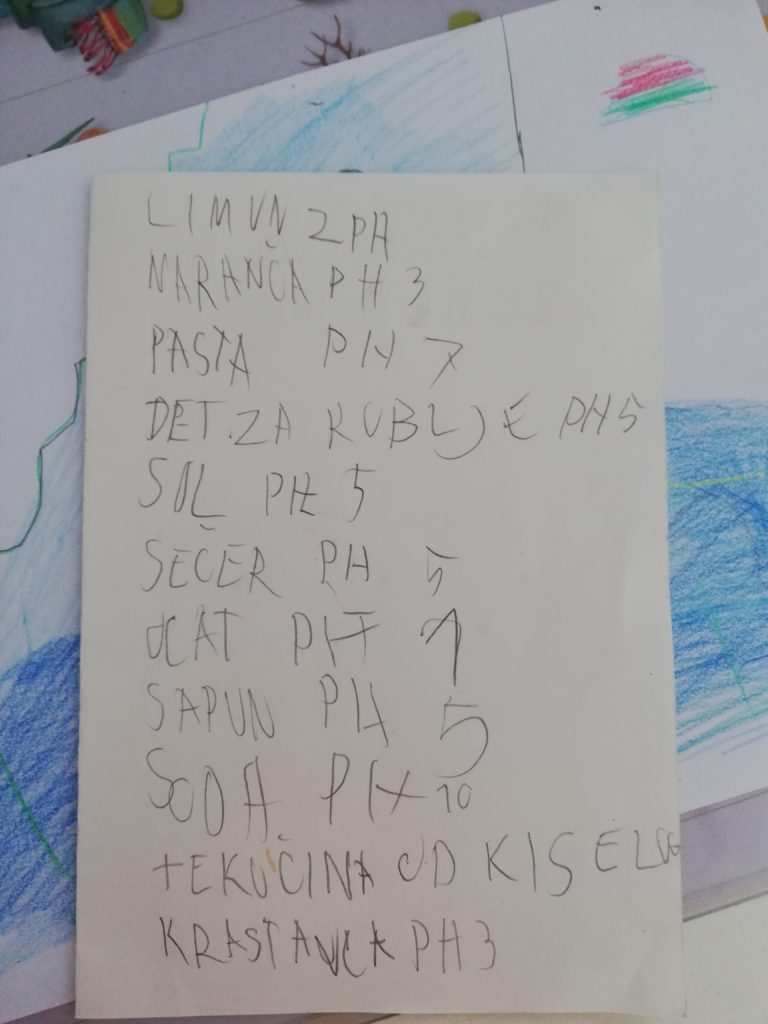 LIMUN 2PH
NARANČA PH 3
PASTA PH 7
DET.ZA RUBLJE PH5
SOL PH 5
ŠEĆER PH 5
OCAT PH 1
SAPUN PH 5
SODA PH 10
TEKUČINA OD KISELOG
KRASTAVCA PH3